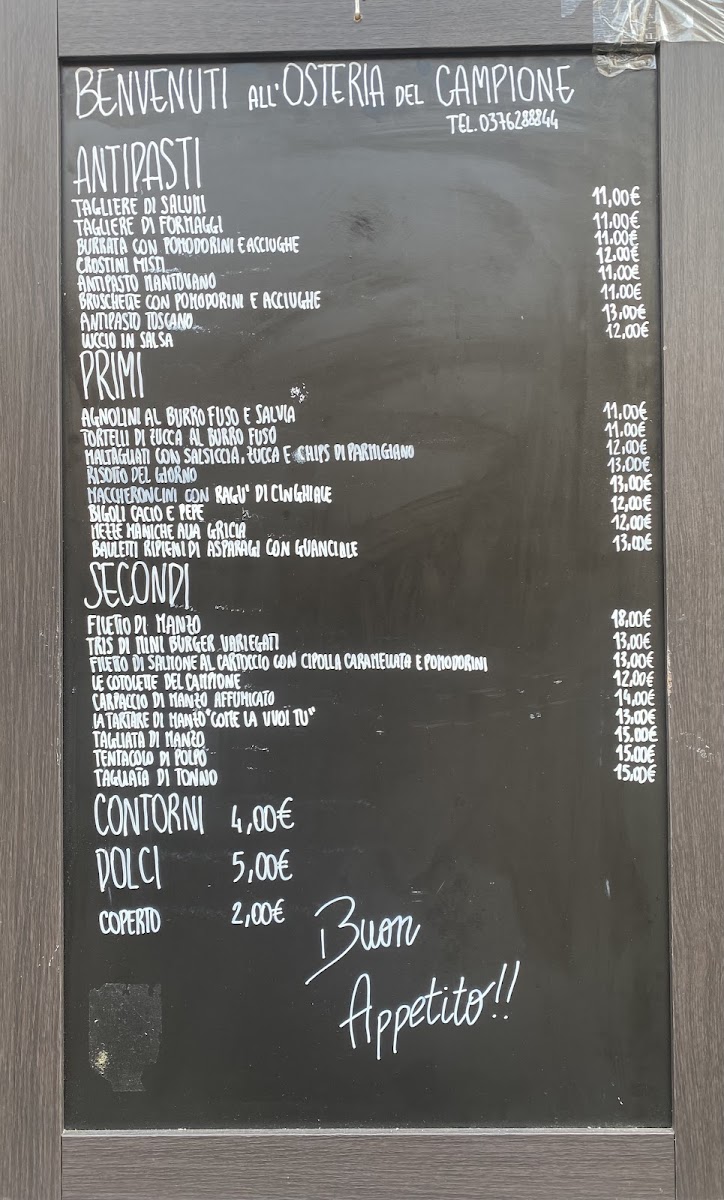 BENVENUTI ALL'OSTERIA DEL CAMPIONE
TEL. 0376288844
ANTIPASTI
TAGLIERE DI SALUMI 11,00€
TAGLIERE DI FORMAGGI 11.00€
BURRATA CON POMODORINI E ACCIUGHE 11.00€
CROSTINI MISTI 12.00€
ANTIPASTO MANTOVANO 11.00€
BRUSCHETTE CON POMODORINI E ACCIUGHE 11.00€
ANTIPASTO TOSCANO 13,00€
LUCCIO IN SALSA 12,00€
PRIMI
AGNOLINI AL BURRO FUSO E SALVIA 11.00€
TORTELLI DI ZUCCA AL BURRO FUSO 11.00€
MALTAGLIATI CON SALSICCIA, ZUCCA E CHIPS DI PARMIGIANO 12,00€
RISOTTO DEL GIORNO 13,00€
MACCHERONCINI CON RAGU' DI CINGHIALE 13,00€
BIGOLI CACIO E PEPE 12,00€
MEZZE MANICHE ALLA GRICIA 12.00€
BAULETTI RIPIENI DI ASPARAGI CON GUANCIALE 13,00€
SECONDI
FILETTO DI MANZO 18.00€
TRIS DI MINI BURGER VARIEGATI 13,00€
FILETTO DI SALMONE AL CARTOCCIO CON CIPOLLA CARAMELLATA E POMODORINI 13,00€
LE COTOLETTE DEL CAMPIONE 12,00€
CARPACCIO DI MANZO AFFUMICATO 14,00€
LA TARTARE DI MANZO "COME LA VUOI TU" 13,00€
TAGLIATA DI MANZO 15,00€
TENTACOLO DI POLPO 15,00€
TAGLIATA DI TONNO 15,00€
CONTORNI 4,00€
DOLCI 5,00€
COPERTO 2,00€
Buon
Appetito!!